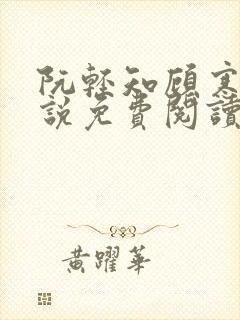 阮輕知顧寒
說免費閱讀
黃躍華